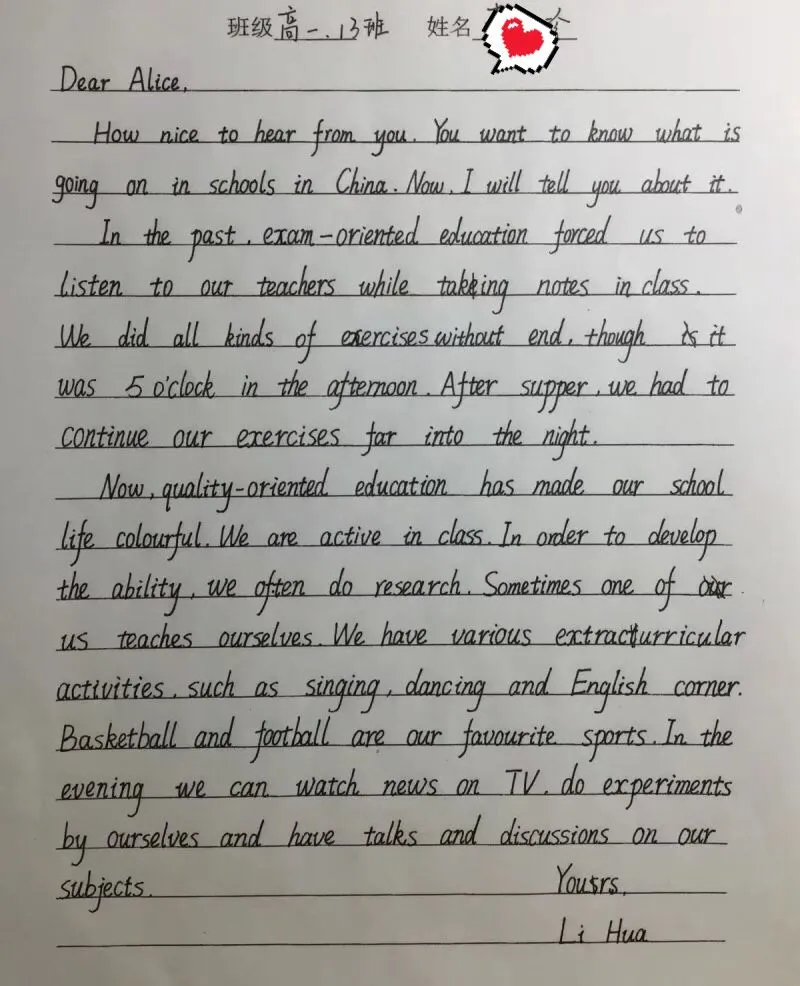 班级 高一.13班 姓名
Dear Alice,
How nice to hear from you. You want to know what is
going on in schools in China. Now, I will tell you about it.
In the past, exam-oriented education forced us to
listen to our teachers while taking notes in class.
We did all kinds of exercises without end, though it
was 5 o'clock in the afternoon. After supper, we had to
continue our exercises far into the night.
Now, quality-oriented education has made our school
life colourful. We are active in class. In order to develop
the ability, we often do research. Sometimes one of
us teaches ourselves. We have various extracurricular
activities, such as singing, dancing and English corner.
Basketball and football are our favourite sports. In the
evening we can watch news on TV, do experiments
by ourselves and have talks and discussions on our
subjects. Yours,
Li Hua